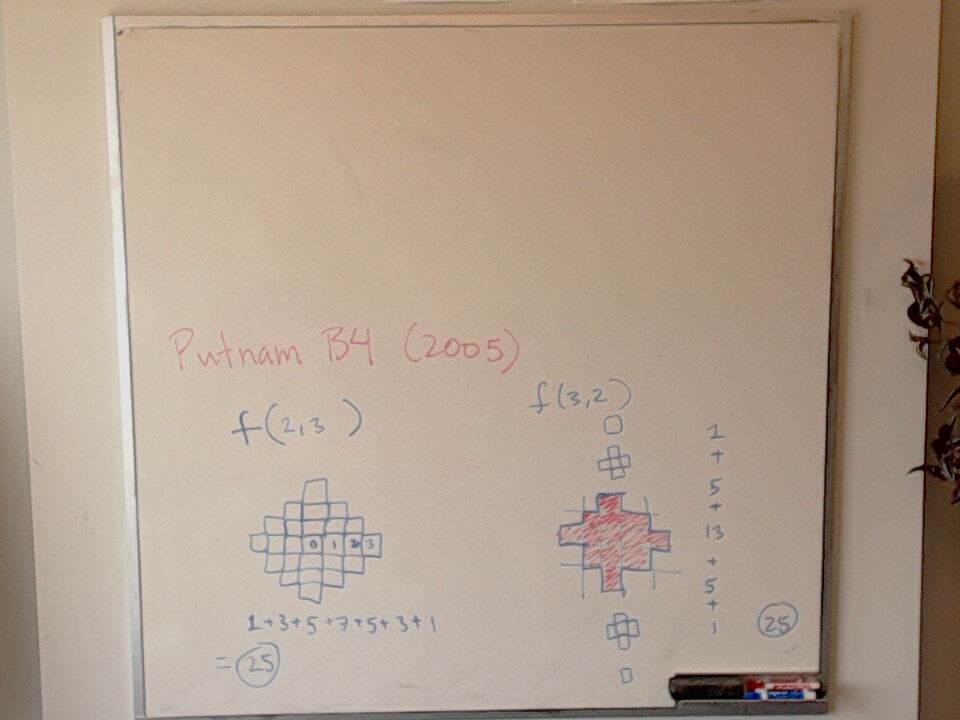 Putnam B4 (2005)
f(2,3)
0 1 2 3
1+3+5+7+5+3+1
= 25
f(3,2)
1
+
5
+
13
+
5
+
1
25